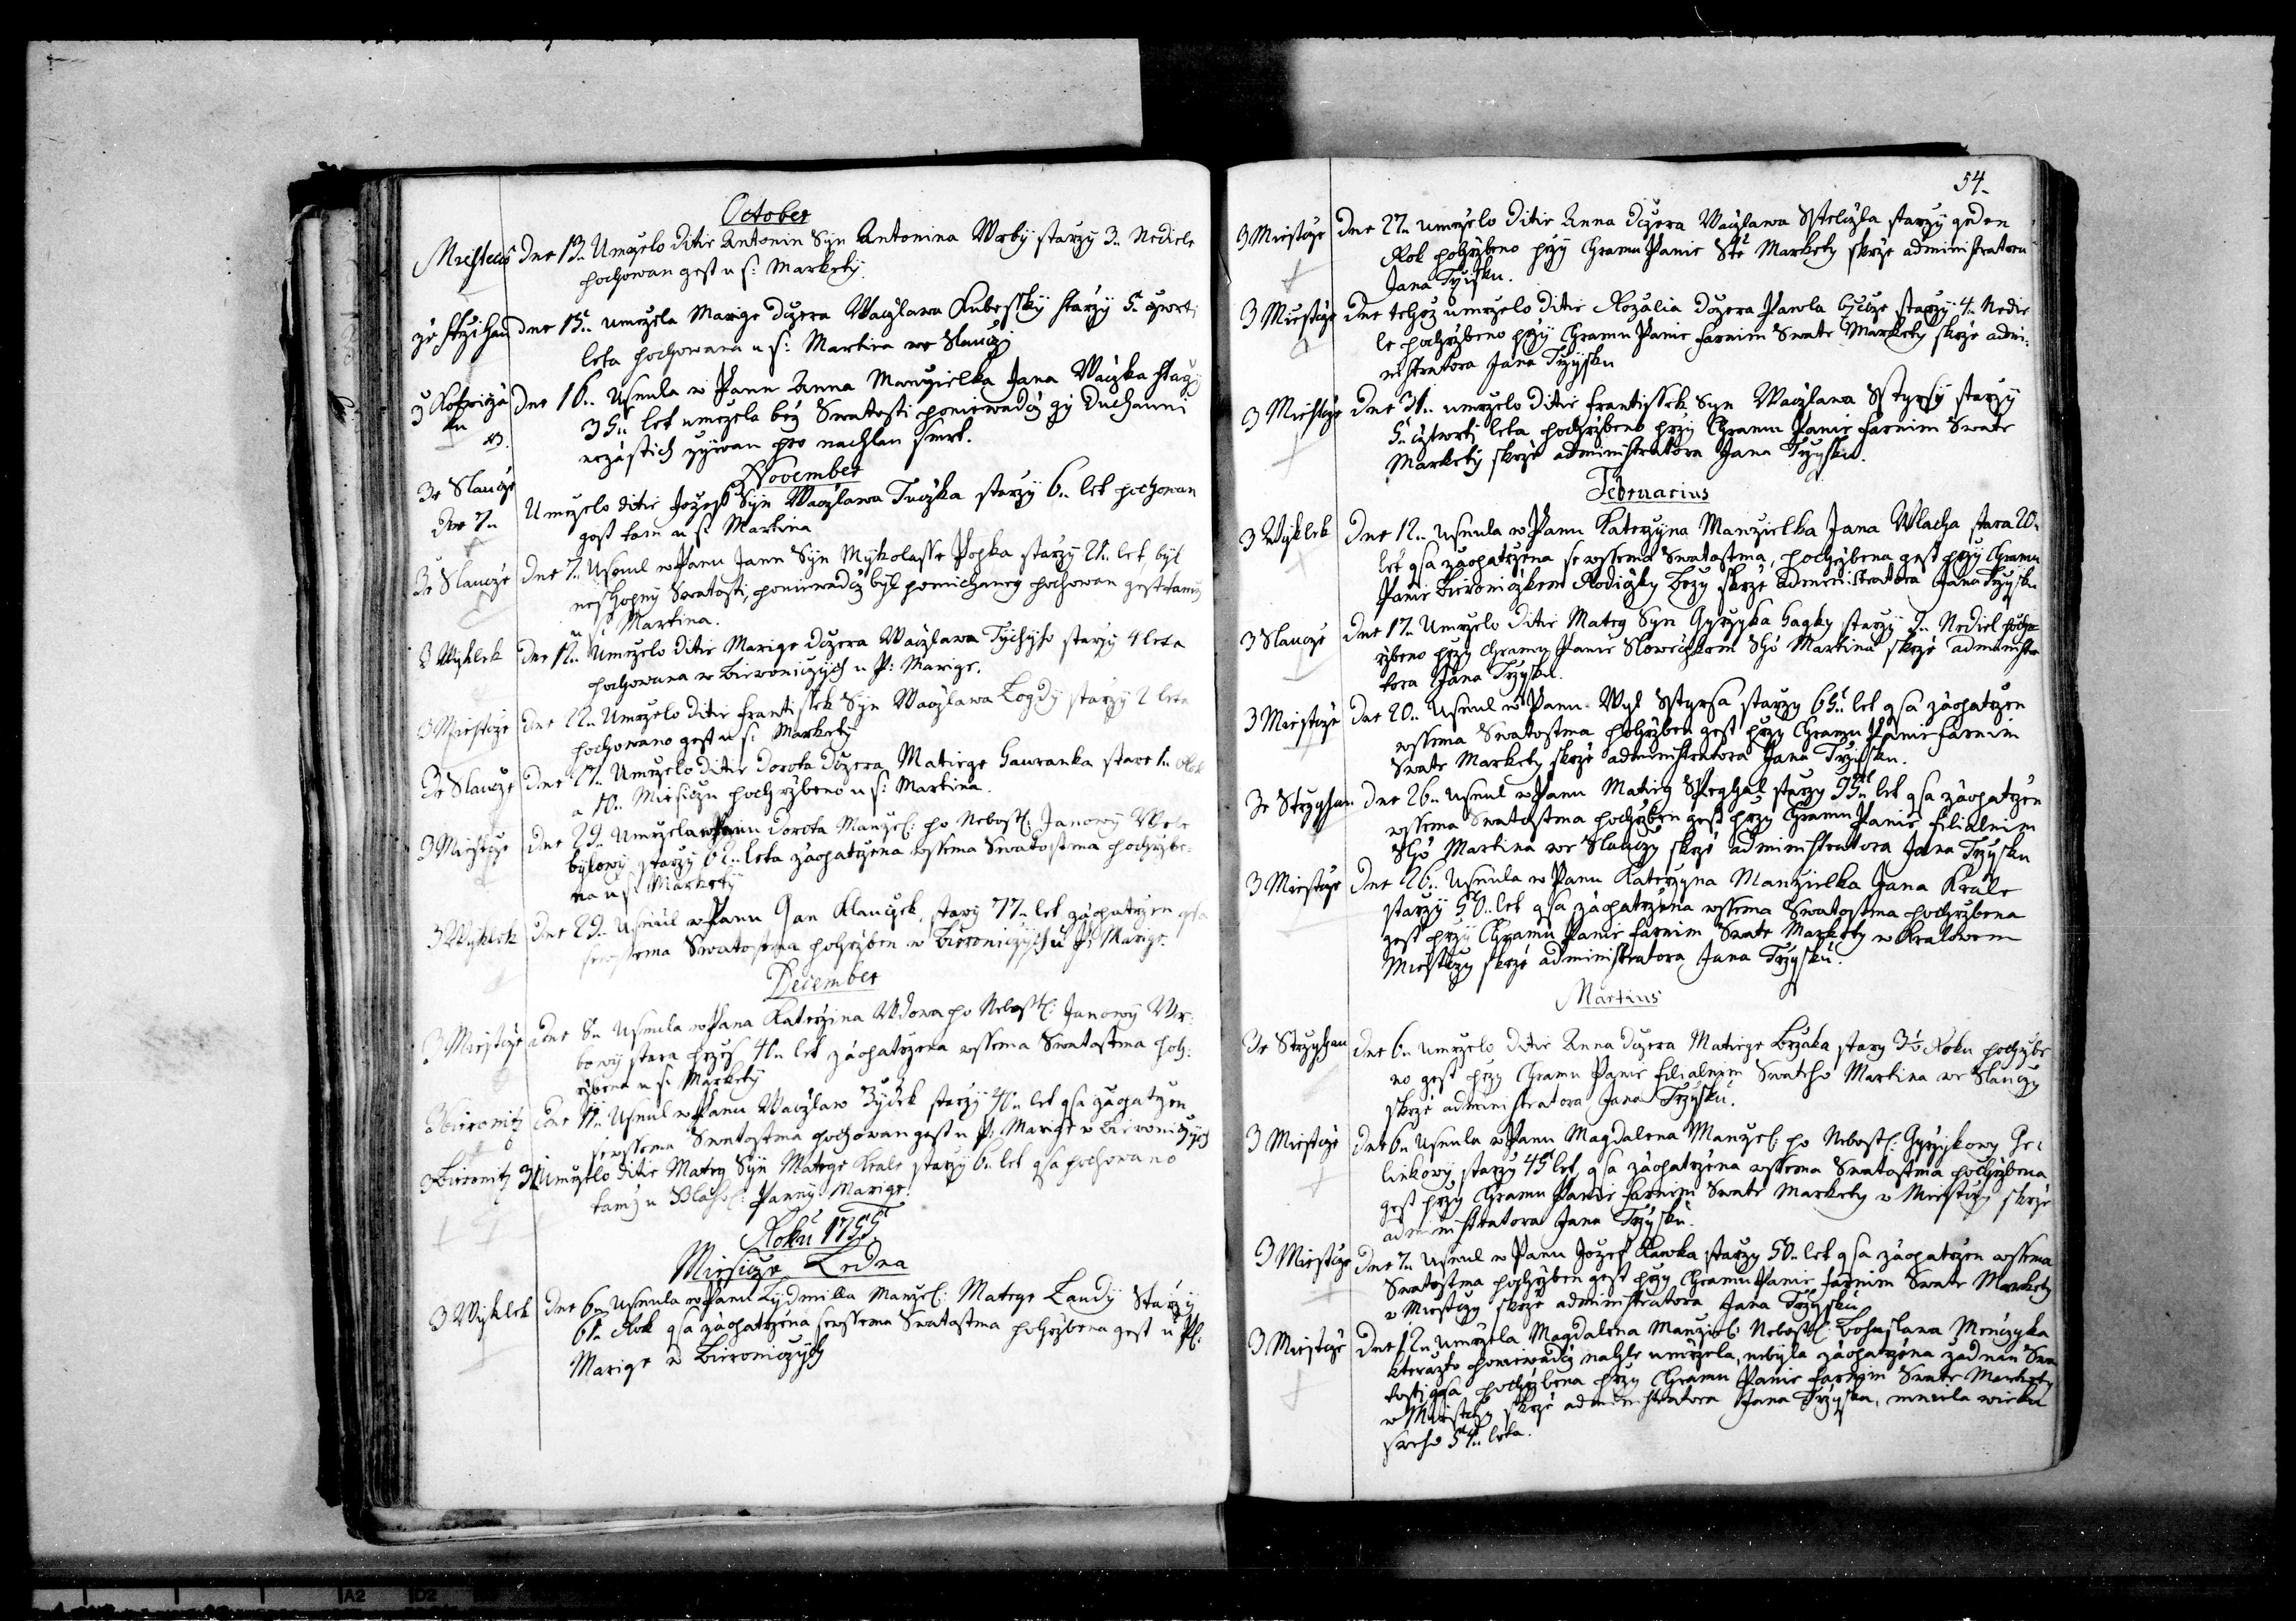 October
Miestecz dne 13. Umrzelo ditie Antonin Syn Antonina Wrby starzy 3. Nediele
pochowan gest u s: Markety.
ze Strzihan dne 15. umrzela Marige dczera Waczlawa Kubessky starzy 5. cztwrti
leta pochowana u s: Martina we Slauczy
dne 16. Usnula w Panu Anna Manzielka Jana starzy
35. let umrzela bez Swatosti poniewadcz gy Duchauni
pro nachlau smrt.
November
Ze Slaucze Umrzelo ditie Jozeff Syn Waczlawa Tuczka starzy 6. let pochowan
dne 7.
gest tam u s: Martina
Ze Slaucze dne 7. Usnul w Panu Jann Syn Mykolasse Popka starzy 21. let byl
neschopny Swatosti, poniewadcz byl pomichaney pochowan gest tamz
u s: Martina.
Z Wyklek dne 12. Umrzelo ditie Marige dczera Waczlawa starzy 4 leta
pochowana w Bieroniczych u P: Marige.
Z Miestcze dne 22. Umrzelo ditie Frantissek Syn Waczlawa Logdy starzy 2 leta
pochowano gest u s: Markety
Ze Slaucze dne 27. Umrzelo ditie Dorota dczera Matiege Hawranka stare 1. Rok
a 10. Miesiczu pochrzbeno u s: Martina.
Z Miestcze dne 29. Umrzela w Panu Dorota Manzel: po Nebosst: Janowy Wele
bylowy starzy 62. leta zaopatrzena wssema Swatostma pochrzbe-
na u s: Markety
Z Wyklek dne 29. Usnul w Panu Jan Klauczek, stary 77. let zaopatrzen gsa
sewssema Swatostma pohrzben w Bieroniczych u P: Marige.
December
Z Miestcze dne 8. Usnula w Panu Katerzina Wdowa po Nebosst: Janowy Wr-
bowy stara przes 40. let, zaopatrzena wssema Swatostma poh:
rzbena u s: Markety
Z Bieronitz dne 11. Usnul w Panu Waczlaw Zydek starzy 40. let gsa zaopatrzen
sewssema Swatostma pochowan gest u P: Marige w Bieroniczych
Z Bieronitz 31 Umrzelo ditie Matey Syn Matege Krale starzy 6. let gsa pochowano
tamz u Blahosl: Panny Marige.
Roku 1755.
Miesicze Ledna
Z Wyklek dne 6. Usnula w Panu Lydmilla Manzel: Matege Landy Starzy
61. Rok gsa zaopatrzena sewssema Swatostma pohrzbena gest u P:
Marige w Bieroniczych
54.
Z Miestcze dne 27. umrzelo ditie Anna dczera Waczlawa starzy geden
Rok pohrzbeno przy Chramu Panie Ste Markety skrze administratora
Jana Trzisku.
Z Miestcze dne tehoz umrzelo ditie Rozalia dczera Pawla starzy 4. Nedie
le pochrzbeno przy Chramu Panie Farnim Swate Markety skrze admi:
nistratora Jana Trzysku
Z Miestcze dne 31. umrzelo ditie Frantissek Syn Waczlawa Sstyrsy starzy
5. cztwrti leta pochrzbeno przy Chramu Panie Farnim Swate
Markety skrze administratora Jana Trzysku.
Februarius
Z Wyklek dne 12. usnula w Panu Katerzyna Manzielka Jana Wlacha stara 20.
let gsa zaopatrzena se wssema Swatostma, pochrzbena gest przy Chramu
Panie Bieroniczkem Rodiczky Bozy skrze administratora Jana Trzysku
Z Slaucze dne 17. Umrzelo ditie Matey Syn Gyrzyka Hagky starzy 7. Nediel poch-
rzbeno przy Chramu Panie Slaweczkem Sho Martina skrze administra
tora Jana Trzysku.
Z Miestcze dne 20. Usnul w Panu Wyt Sstyrsa starzy 65. let gsa zaopatrzen
wssema Swatostma pohrzben gest przy Chramu Panie Farnim
Swate Markety skrze administratora Jana Trzysku.
Ze Strzyhan dne 26. usnul w Panu Matiey Speghal starzy 95. let gsa zaopatrzen
wssema Swatostma pochrzben gest przy Chramu Panie Filialnim
Sho Martina we Slauczy skrze administratora Jana Trzysku
Z Miestcze dne 26. Usnula w Panu Katerzyna Manzielka Jana Krale
starzy 50. let gsa zaopatrzena wssema Swatostma pochrzbena
gest przy Chramu Panie Farnim Swate Markety w Kralowem
Miestczy skrze administratora Jana Trzysku.
Martius
Ze Strzyhan dne 6. umrzelo ditie Anna dczera Matiege Brzaka stary 3½ Roku pochrzbe
no gest przy Chramu Panie Filialnym Swateho Martina we Slauczy
skrze administratora Jana Trzysku.
Z Miestcze dne 6. usnula w Panu Magdalena Manzel: po Nebosst: Gyrzikowy Ge-
linkowy starzy 45 let, gsa zaopatrzena wssema Swatostma pochrzbena
gest przy Chramu Panie Farnim Swate Markety w Miestczy skrze
administratora Jana Trzysku.
Z Miestcze dne 7. usnul w Panu Jozeff Kawka starzy 50. let gsa zaopatrzen wssema
Swatostma pochrzben gest przy Chramu Panie Farnim Swate Markety
w Miestczy skrze administratora Jana Trzysku
Z Miestcze dne 12. umrzela Magdalena Manziel: Nebosst: Bohuslawa Menczyka
kterazto poniewadcz nahle umrzela, nebyla zaopatrzena zadnau Swa
tosti gsa pochrzbena przy Chramu Panie Farnim Swate Markety
w Miestczy skrze administratora Jana Trzysku, mniela wieku
sweho 54. leta.